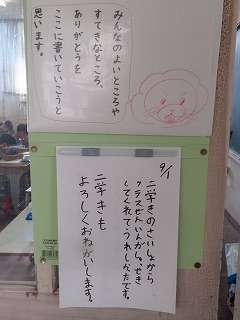 みんなのよいところや
すてきなところ、
ありがとうを
ここに書いていこうと
思います。
9/1
二学きのさいしょから
クラスぜんいんから、せき
してくれてうれしかったです。
二学きも
よろしくおねがいします。